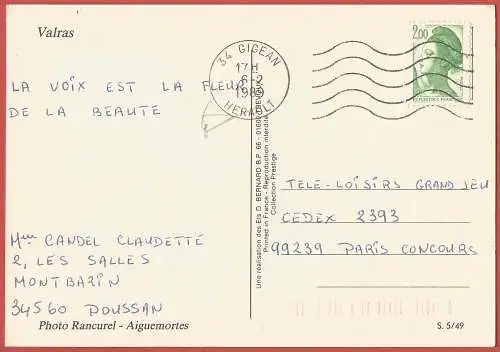 Valras
34 GIGEAN
17H
6-2
HERAULT
2,00
LA VOIX EST LA FLEUR
DE LA BEAUTÉ
TÉLÉ-LOISIRS GRAND JEU
CEDEX 2393
99239 PARIS CONCOURS
Mme CANDEL CLAUDETTE
2, LES SALLES
MONTBAZIN
34560 POUSSAN
Une réalisation des Ets D. BERNARD B.P. 66 - 01600
Printed in France - Reproduction interdite
Collection Prestige
Photo Rancurel - Aiguemortes
S. 5/49